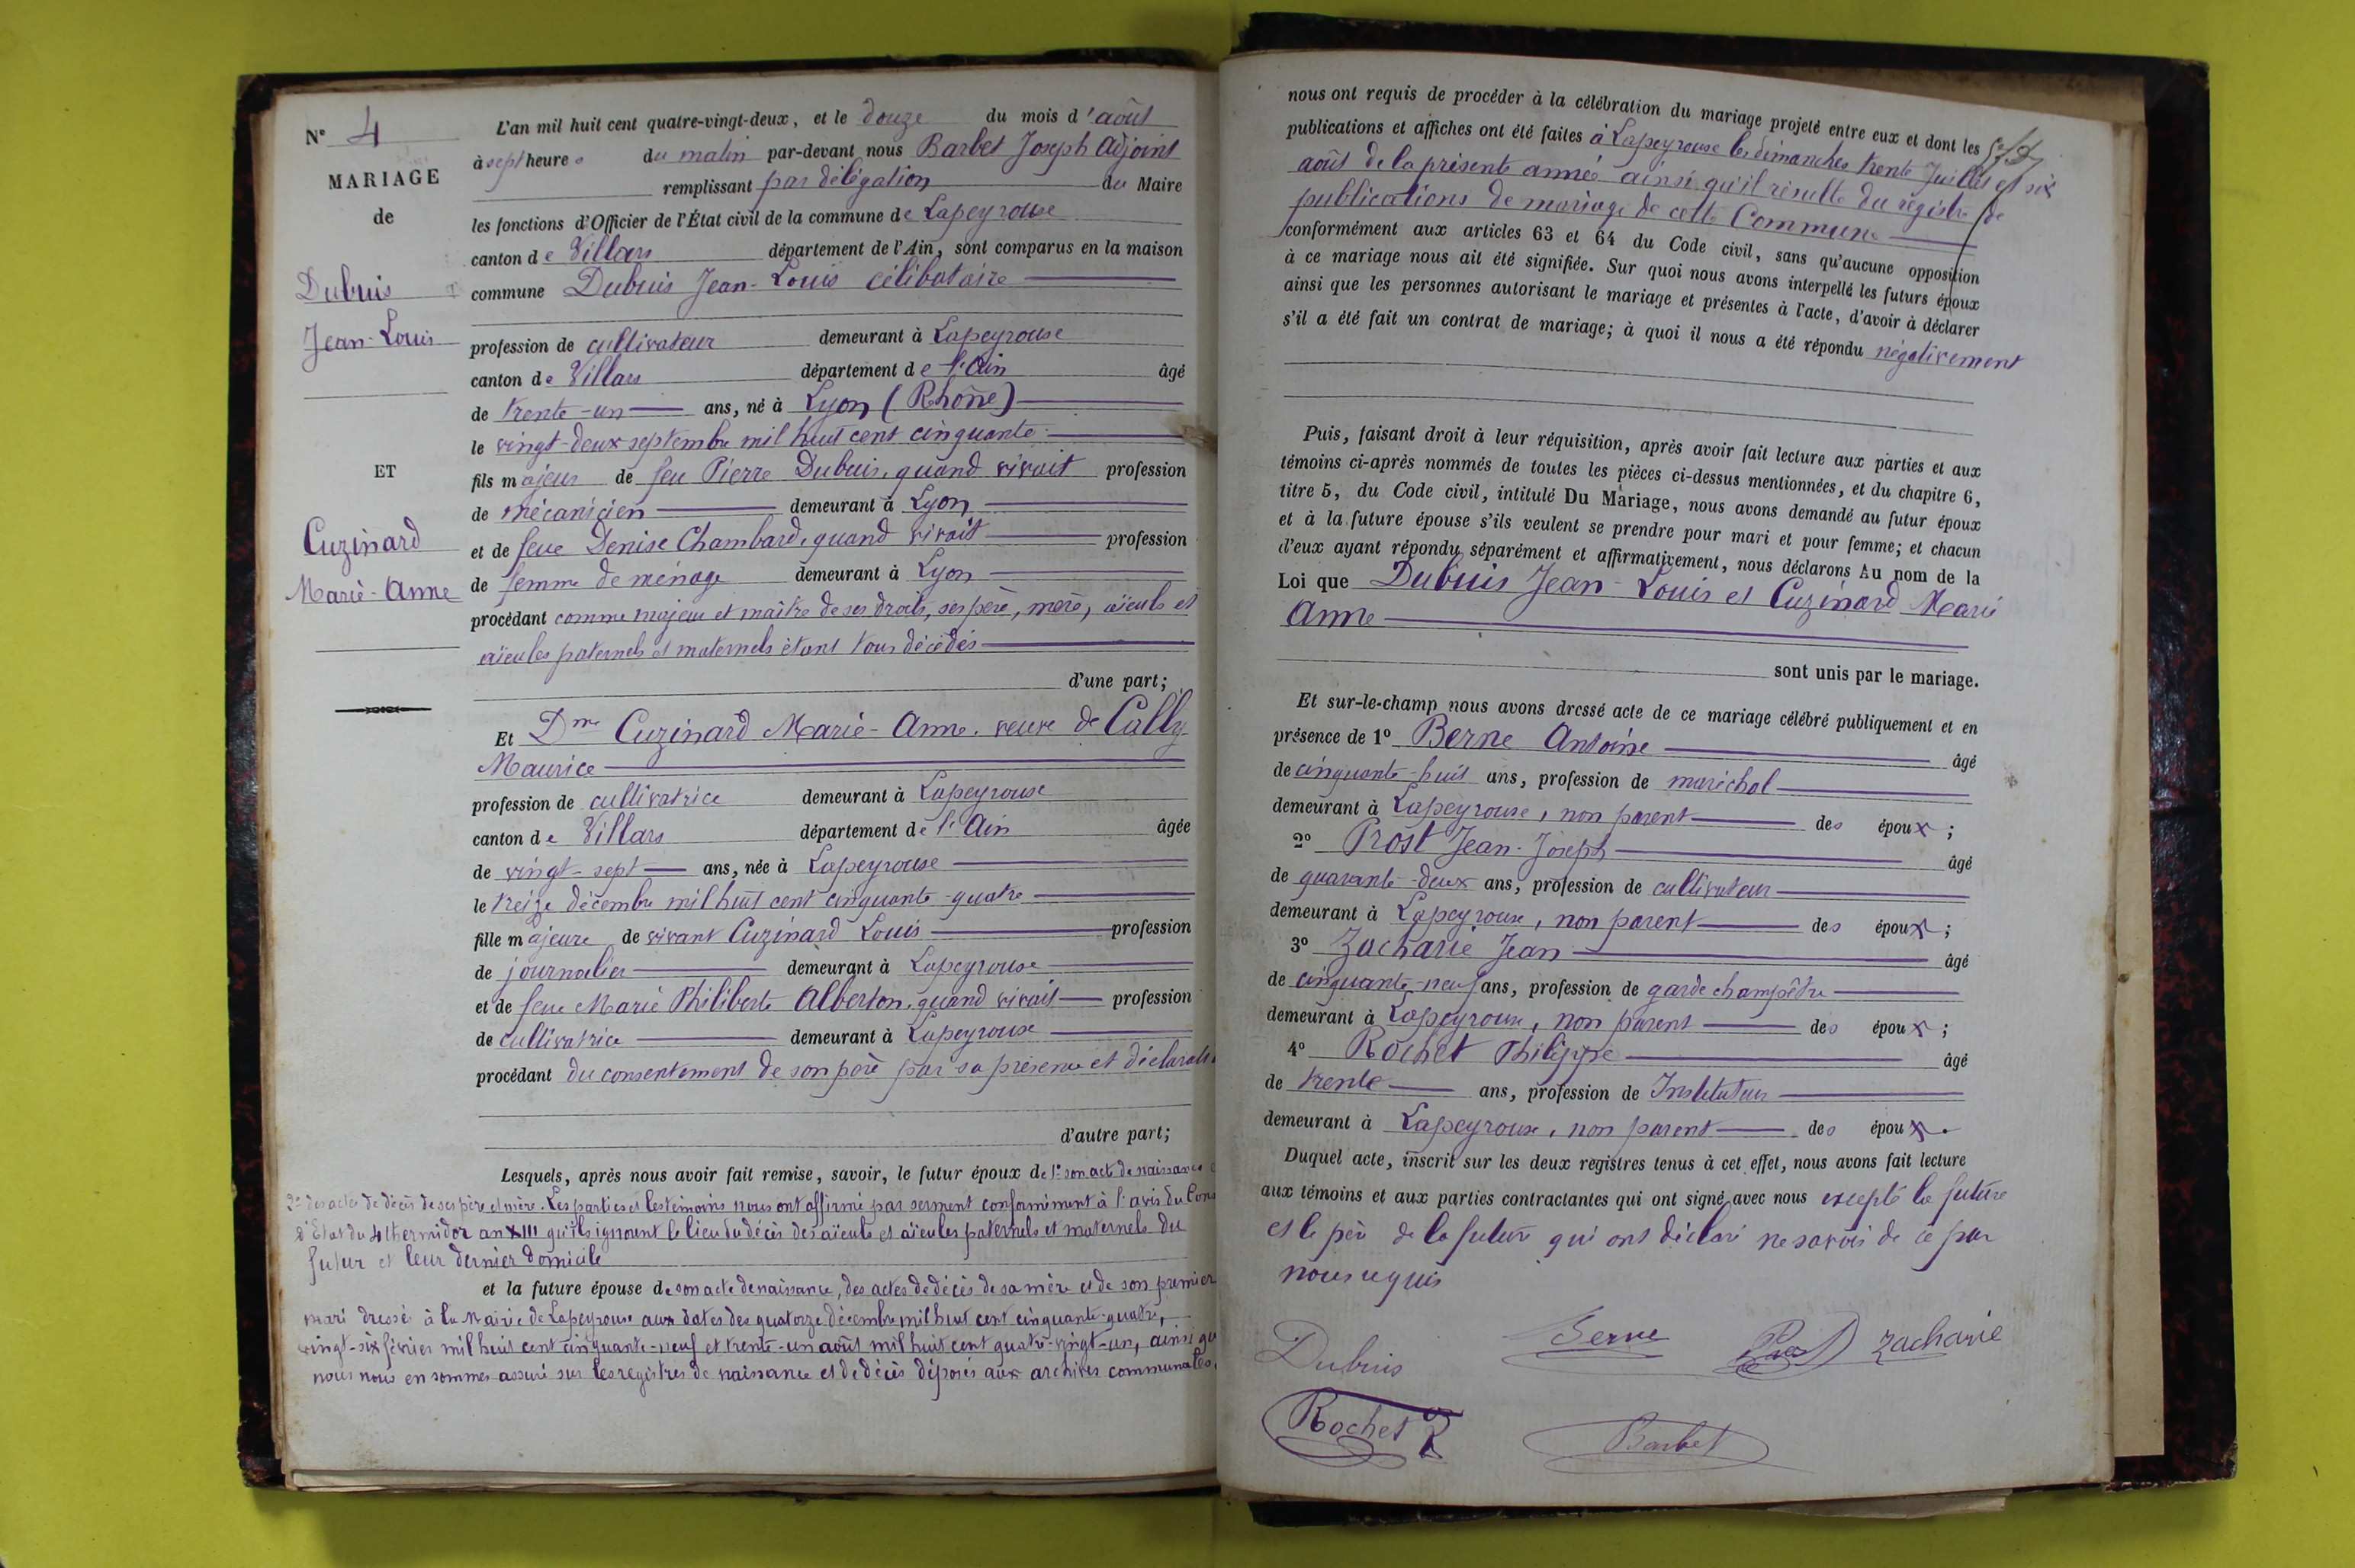 N° 4
MARIAGE
de
Dubuis
Jean-Louis
ET
Cuzinard
Marie-Anne
L'an mil huit cent quatre-vingt-deux, et le douze du mois d'août
à sept heures du matin par-devant nous Barbet Joseph Adjoint
remplissant par délégation du Maire
les fonctions d'Officier de l'État civil de la commune de Lapeyrouse
canton de Villars département de l'Ain, sont comparus en la maison
commune Dubuis Jean-Louis célibataire
profession de cultivateur demeurant à Lapeyrouse
canton de Villars département de l'Ain âgé
de trente-un ans, né à Lyon (Rhône)
le vingt-deux septembre mil huit cent cinquante
fils majeur de feu Pierre Dubuis, quand vivait profession
de mécanicien demeurant à Lyon
et de feue Denise Chambard, quand vivait profession
de femme de ménage demeurant à Lyon
procédant comme majeur et maître de ses droits, ses père, mère, aïeuls et
aïeules paternels et maternels étant tous décédés
d'une part;
Et Dme Cuzinard Marie-Anne, veuve de Cally
Maurice
profession de cultivatrice demeurant à Lapeyrouse
canton de Villars département de l'Ain âgée
de vingt-sept ans, née à Lapeyrouse
le treize décembre mil huit cent cinquante-quatre
fille majeure de vivant Cuzinard Louis profession
de journalier demeurant à Lapeyrouse
et de feue Marie Philiberte Alberton, quand vivait profession
de cultivatrice demeurant à Lapeyrouse
procédant du consentement de son père par sa présence et déclarati
d'autre part;
Lesquels, après nous avoir fait remise, savoir, le futur époux de 1° son acte de naissance
2° des actes de décès de ses père et mère. Les parties et les témoins nous ont affirmé par serment conformément à l'avis du Cons
d'État du 4 thermidor an XIII qu'ils ignorent le lieu du décès des aïeuls et aïeules paternels et maternels du
futur et leur dernier domicile
et la future épouse de son acte de naissance, des actes de décès de sa mère et de son premier
mari dressé à la Mairie de Lapeyrouse aux dates des quatorze décembre mil huit cent cinquante-quatre,
vingt-six février mil huit cent cinquante-neuf et trente-un août mil huit cent quatre-vingt-un, ainsi que
nous nous en sommes assuré sur les registres de naissance et de décès déposés aux archives communales,
nous ont requis de procéder à la célébration du mariage projeté entre eux et dont les
publications et affiches ont été faites à Lapeyrouse les dimanches trente Juillet et six
août de la présente année ainsi qu'il résulte du registre de
publications de mariage de cette Commune
conformément aux articles 63 et 64 du Code civil, sans qu'aucune opposition
à ce mariage nous ait été signifiée. Sur quoi nous avons interpellé les futurs époux
ainsi que les personnes autorisant le mariage et présentes à l'acte, d'avoir à déclarer
s'il a été fait un contrat de mariage; à quoi il nous a été répondu négativement
Puis, faisant droit à leur réquisition, après avoir fait lecture aux parties et aux
témoins ci-après nommés de toutes les pièces ci-dessus mentionnées, et du chapitre 6,
titre 5, du Code civil, intitulé Du Mariage, nous avons demandé au futur époux
et à la future épouse s'ils veulent se prendre pour mari et pour femme; et chacun
d'eux ayant répondu séparément et affirmativement, nous déclarons Au nom de la
Loi que Dubuis Jean-Louis et Cuzinard Marie
Anne
sont unis par le mariage.
Et sur-le-champ nous avons dressé acte de ce mariage célébré publiquement et en
présence de 1° Berne Antoine âgé
de cinquante-huit ans, profession de maréchal
demeurant à Lapeyrouse, non parent des époux;
2° Prost Jean-Joseph âgé
de quarante-deux ans, profession de cultivateur
demeurant à Lapeyrouse, non parent des époux;
3° Zacharie Jean âgé
de cinquante-neuf ans, profession de garde champêtre
demeurant à Lapeyrouse, non parent des époux;
4° Rochet Philippe âgé
de trente ans, profession de Instituteur
demeurant à Lapeyrouse, non parent des époux.
Duquel acte, inscrit sur les deux registres tenus à cet effet, nous avons fait lecture
aux témoins et aux parties contractantes qui ont signé avec nous excepté la future
et le père de la future qui ont déclaré ne savoir de ce par
nous requis
Dubuis Berne Prost Zacharie
Rochet Barbet